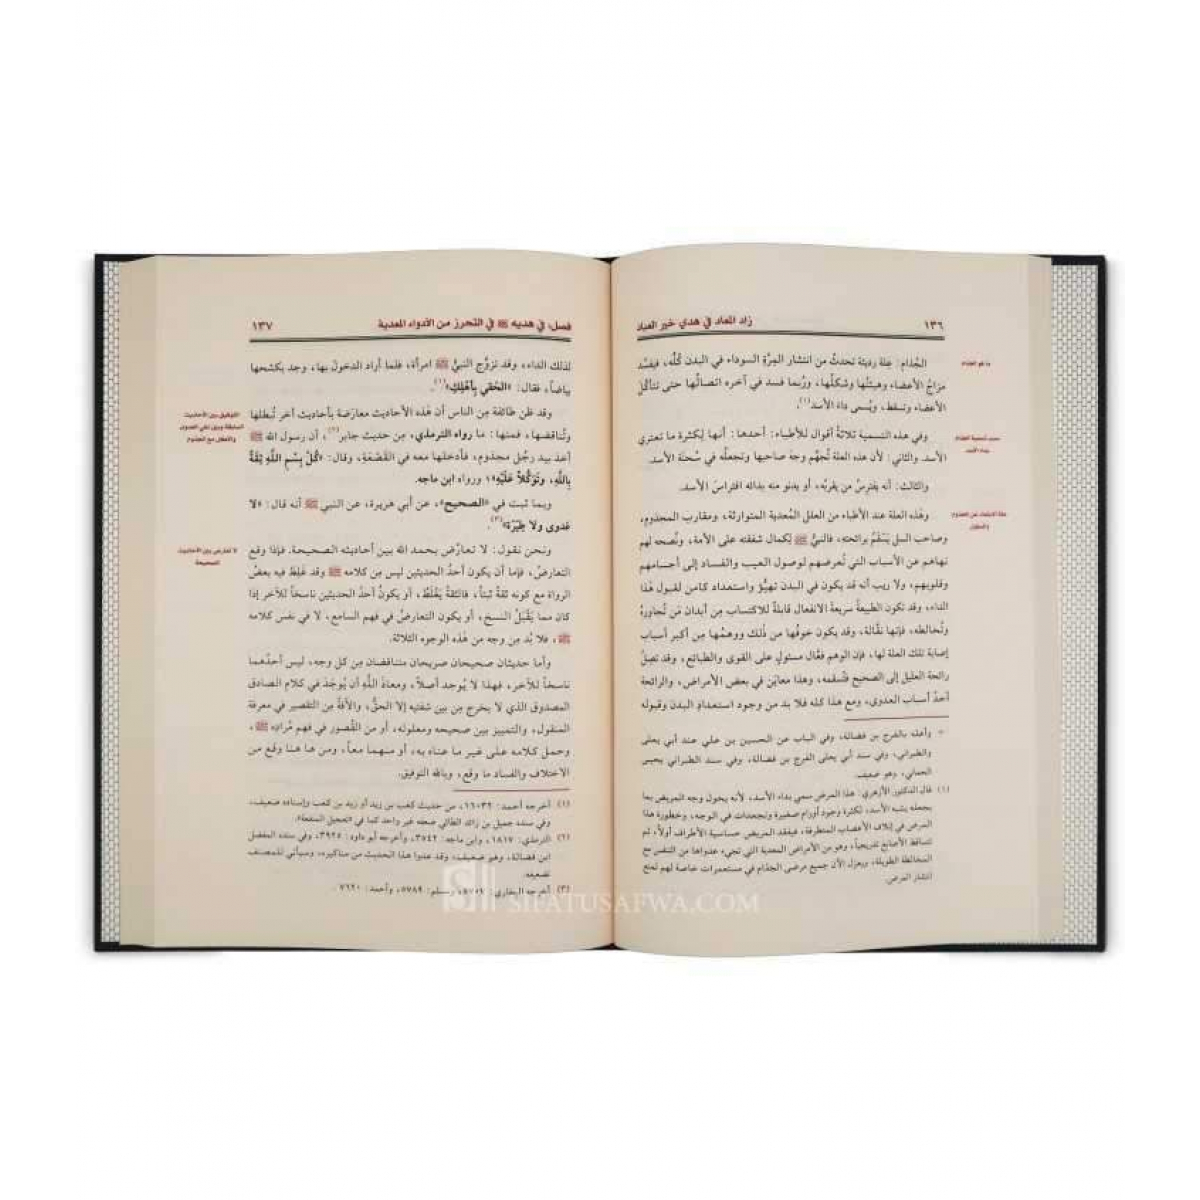 ١٣٦
زاد المعاد في هدي خير العباد
ما هو الجذام
الجُذام: عِلة رديئة تحدثُ من انتشار المِرَّةِ السوداء في البدن كُلِّه، فيفسُد
مِزاجُ الأعضاء وهيئتُها وشكلُها، ورُبما فسد في آخره اتصالُها حتى تتأكَّل
الأعضاء وتسقط، ويُسمى داءَ الأسد(١).
سبب تسمية الجذام
بداء الأسد
وفي هذه التسمية ثلاثةُ أقوال للأطباء: أحدها: أنها لِكثرة ما تعتري
الأسد. والثاني: لأن هذه العلة تُجهِّم وجهَ صاحبها وتجعلُه في سُحنة الأسد.
والثالث: أنه يفترِسُ من يقرُبه، أو يدنو منه بدائه افتراسَ الأسد.
علة الابتعاد عن المجذوم
والمسلول
وهذه العلة عند الأطباء من العلل المُعدية المتوارثة، ومقارب المجذوم،
وصاحب السل يَسْقَمُ برائحته، فالنبيُّ ﷺ لِكمال شفقته على الأمة، ونُصحه لهم
نهاهم عن الأسباب التي تُعرضهم لوصول العيب والفساد إلى أجسامهم
وقلوبهم، ولا ريب أنه قد يكون في البدن تهيُّؤ واستعداد كامن لقبول هذا
الداء، وقد تكون الطبيعةُ سريعةَ الانفعال قابلةً للاكتساب مِن أبدان مَن تُجاوِرُه
وتُخالطه، فإنها نقَّالة، وقد يكون خوفُها من ذلك ووهمُها مِن أكبر أسباب
إصابة تلك العلة لها، فإن الوهم فعَّال مستولٍ على القوى والطبائع، وقد تصِلُ
رائحة العليل إلى الصحيح فتُسقمه، وهذا معايَن في بعض الأمراض، والرائحة
أحدُ أسباب العدوى، ومع هذا كله فلا بد من وجود استعدادِ البدن وقبوله
= وأعله بالفرج بن فضالة، وفي الباب عن الحسين بن علي عند أبي يعلى
والطبراني، وفي سند أبي يعلى الفرج بن فضالة، وفي سند الطبراني يحيى
الحماني، وهو ضعيف.
(١) قال الدكتور الأزهري: هذا المرض سمي بداء الأسد، لأنه يحول وجه المريض بما
يجعله يشبه الأسد، لكثرة وجود أورام صغيرة وتجعدات في الوجه، وخطورة هذا
المرض في إتلاف الأعصاب المتطرفة، فيفقد المريض حساسية الأطراف أولاً، ثم
تتساقط الأصابع تدريجياً، وهو من الأمراض المعدية التي تجيء عدواها من التنفس مع
المخالطة الطويلة، ويعزل الآن جميع مرضى الجذام في مستعمرات خاصة لهم لمنع
انتشار المرض.
فصل: في هديه ﷺ في التحرز من الأدواء المعدية
١٣٧
لذلك الداء، وقد تزوَّج النبيُّ ﷺ امرأة، فلما أراد الدخولَ بها، وجد بكشحها
بياضاً، فقال: «الحَقي بأَهْلِكِ»(١).
التوفيق بين الأحاديث
السابقة وبين نفي العدوى
والأكل مع المجذوم
وقد ظن طائفة مِن الناس أن هذه الأحاديث معارَضة بأحاديث أخر تُبطلها
وتُناقضها، فمنها: ما رواه الترمذي، مِن حديث جابر(٢)، أن رسول الله ﷺ
أخذ بيد رجُلٍ مجذوم، فأدخلها معه في القَصْعَةِ، وقال: «كُلْ بِسْمِ اللَّهِ ثِقَةً
بِاللَّهِ، وَتَوَكُّلاً عَلَيْهِ» ورواه ابن ماجه.
وبما ثبت في «الصحيح»، عن أبي هريرة، عن النبي ﷺ أنه قال: «لا
عَدوى ولا طِيَرَةَ»(٣).
لا تعارض بين الأحاديث
الصحيحة
ونحن نقول: لا تعارُضَ بحمد الله بين أحاديثه الصحيحة. فإذا وقع
التعارضُ، فإما أن يكون أحدُ الحديثين ليس مِن كلامه ﷺ وقد غَلِطَ فيه بعضُ
الرواة مع كونه ثقةً ثبتاً، فالثقةُ يَغْلَطُ، أو يكونُ أحدُ الحديثين ناسخاً للآخر إذا
كان مما يَقْبَلُ النسخ، أو يكون التعارضُ في فهم السامع، لا في نفس كلامه
ﷺ، فلا بُد مِن وجه من هذه الوجوه الثلاثة.
وأما حديثان صحيحان صريحان متناقضان مِن كل وجه، ليس أحدُهما
ناسخاً للآخر، فهذا لا يُوجد أصلاً، ومعاذَ اللَّهِ أن يُوجَدَ في كلام الصادق
المصدوق الذي لا يخرج مِن بين شفتيه إلا الحقُّ، والآفةُ مِن التقصير في معرفة
المنقول، والتمييز بين صحيحه ومعلوله، أو من القُصور في فهم مُراده ﷺ،
وحمل كلامه على غير ما عناه به، أو منهما معاً، ومن ها هنا وقع من
الاختلاف والفساد ما وقع، وبالله التوفيق.
(١) أخرجه أحمد: ١٦٠٣٢، من حديث كعب بن زيد أو زيد بن كعب وإسناده ضعيف،
وفي سنده جميل بن زائد الطائي ضعفه غير واحد كما في «تعجيل المنفعة».
(٢) الترمذي: ١٨١٧، وابن ماجه: ٣٥٤٢، وأخرجه أبو داود: ٣٩٢٥، وفي سنده المفضل
ابن فضالة، وهو ضعيف، وقد عدوا هذا الحديث من مناكيره، وسيأتي للمصنف
تضعيفه.
(٣) أخرجه البخاري: ٥٧٠٧، ومسلم: ٥٧٨٩، وأحمد: ٧٦٢٠.
SIFATUSAFWA.COM